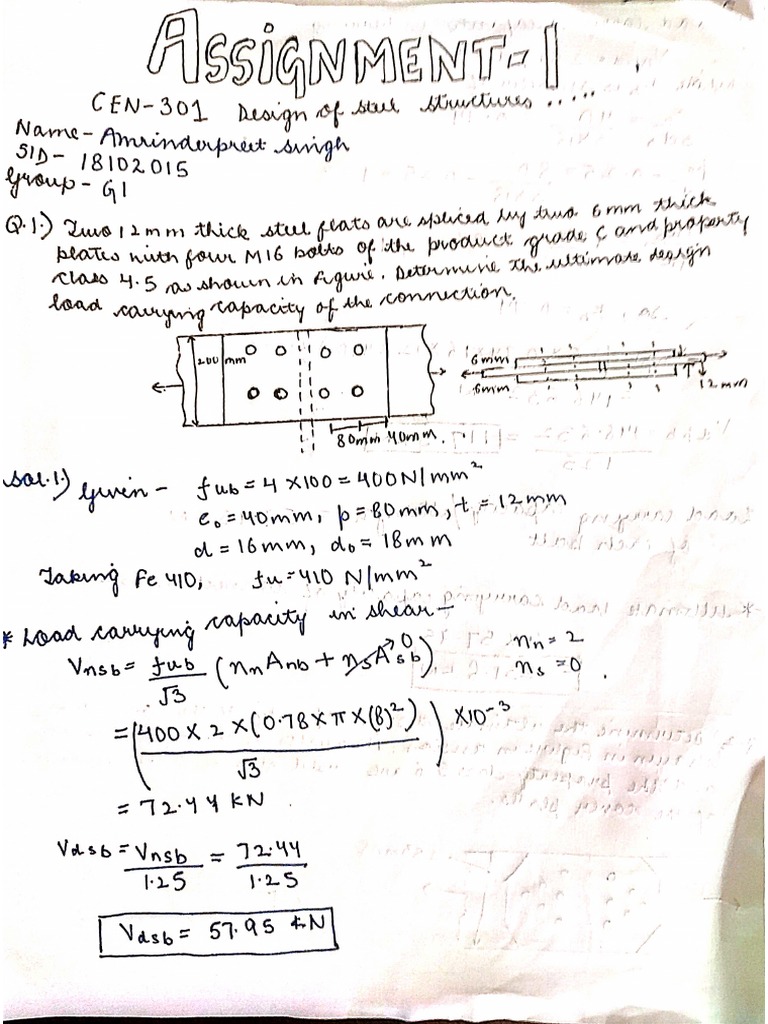 ASSIGNMENT-1
CEN-301 Design of steel structures.....
Name- Amrinderpreet Singh
SID- 18102015
Group- G1
Q.1.) Two 12mm thick steel flats are spliced by two 6mm thick
plates with four M16 bolts of the product grade C and property
class 4.5 as shown in figure. Determine the ultimate design
load carrying capacity of the connection.
200 mm
6mm
6mm
12 mm
80mm 40mm.
Sol.1.) Given- fub = 4 × 100 = 400 N/mm²
e₀ = 40mm, p = 80mm, t = 12mm
d = 16mm, d₀ = 18mm
Taking Fe 410, fu = 410 N/mm²
* Load carrying capacity in shear-
Vnsb = fub/√3 (nn Anb + ns Asb) → 0
nn = 2
ns = 0.
= (400 × 2 × (0.78 × π × (8)²)/√3) × 10⁻³
= 72.44 KN.
Vdsb = Vnsb/1.25 = 72.44/1.25
Vdsb = 57.95 kN